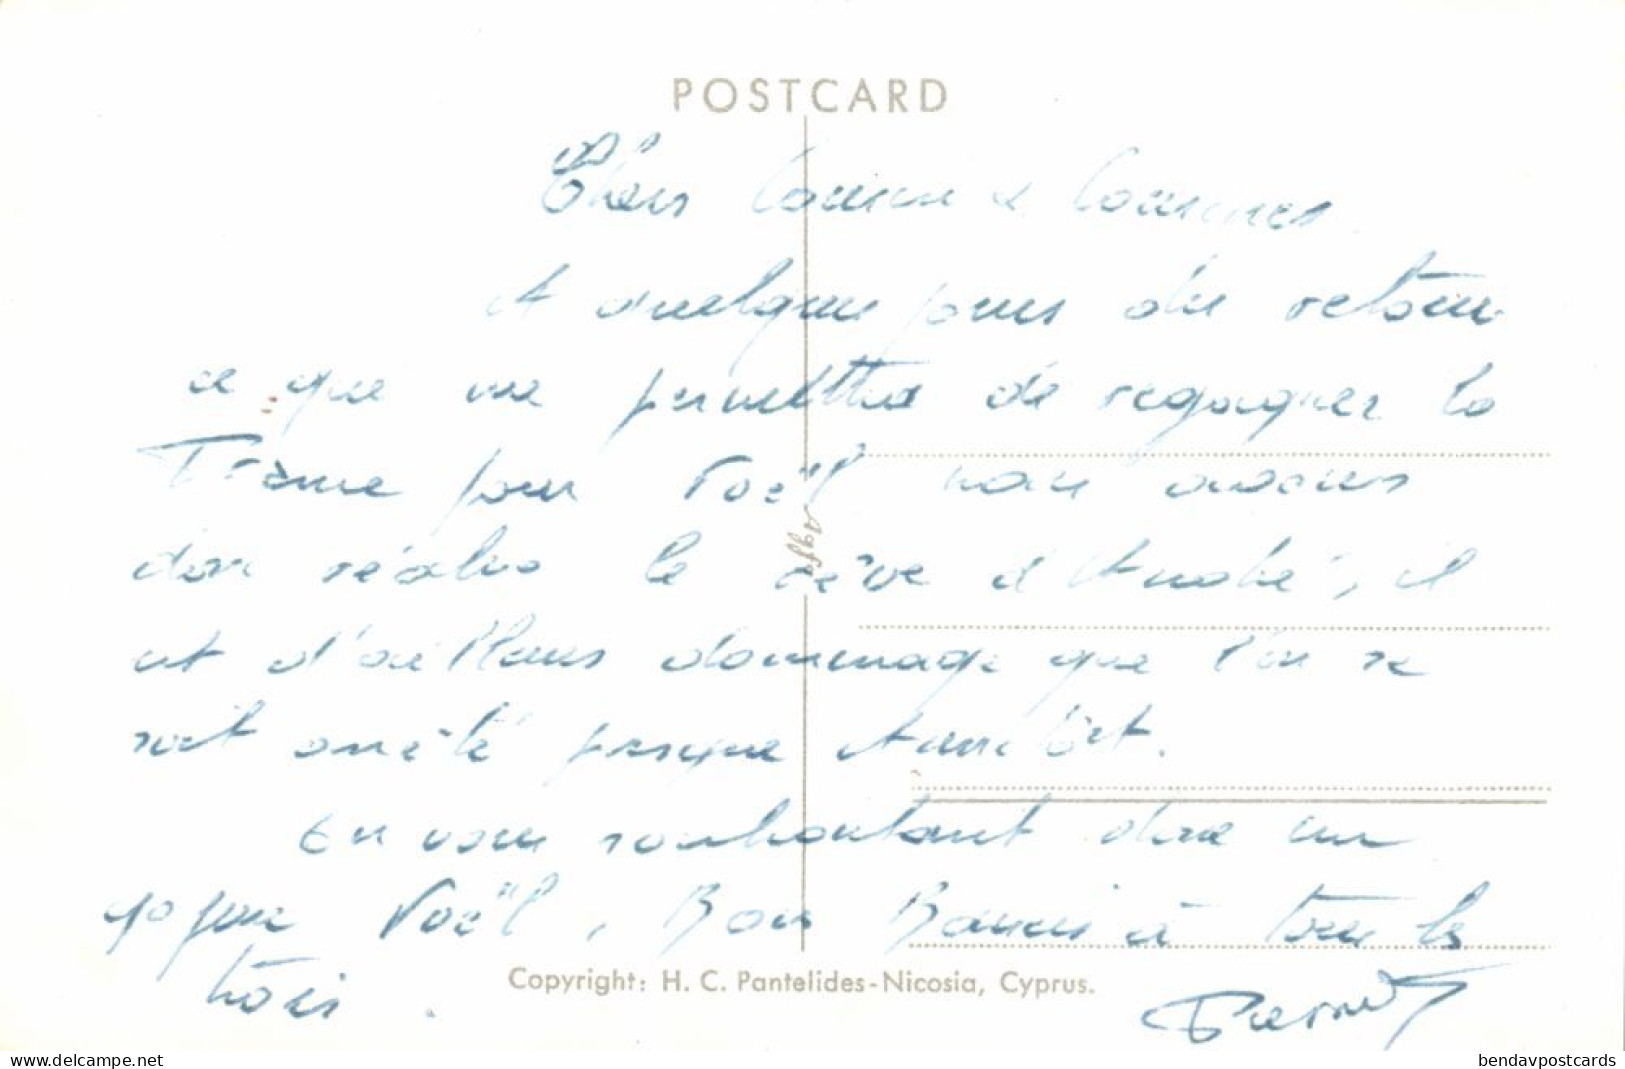 POSTCARD
Chers Cousin & Cousines.
A quelques jours du retour
ce que me permettra de regagner la
France pour Noël nous avons
donc réalisé le rêve d'André, il
est d'ailleurs dommage que l'on se
soit arrêté presque
En vous souhaitant donc un
joyeux Noël, Bons Baisers à tous les
trois.
Agfa
Copyright: H. C. Pantelides-Nicosia, Cyprus.
delcampe.net
bendavpostcards